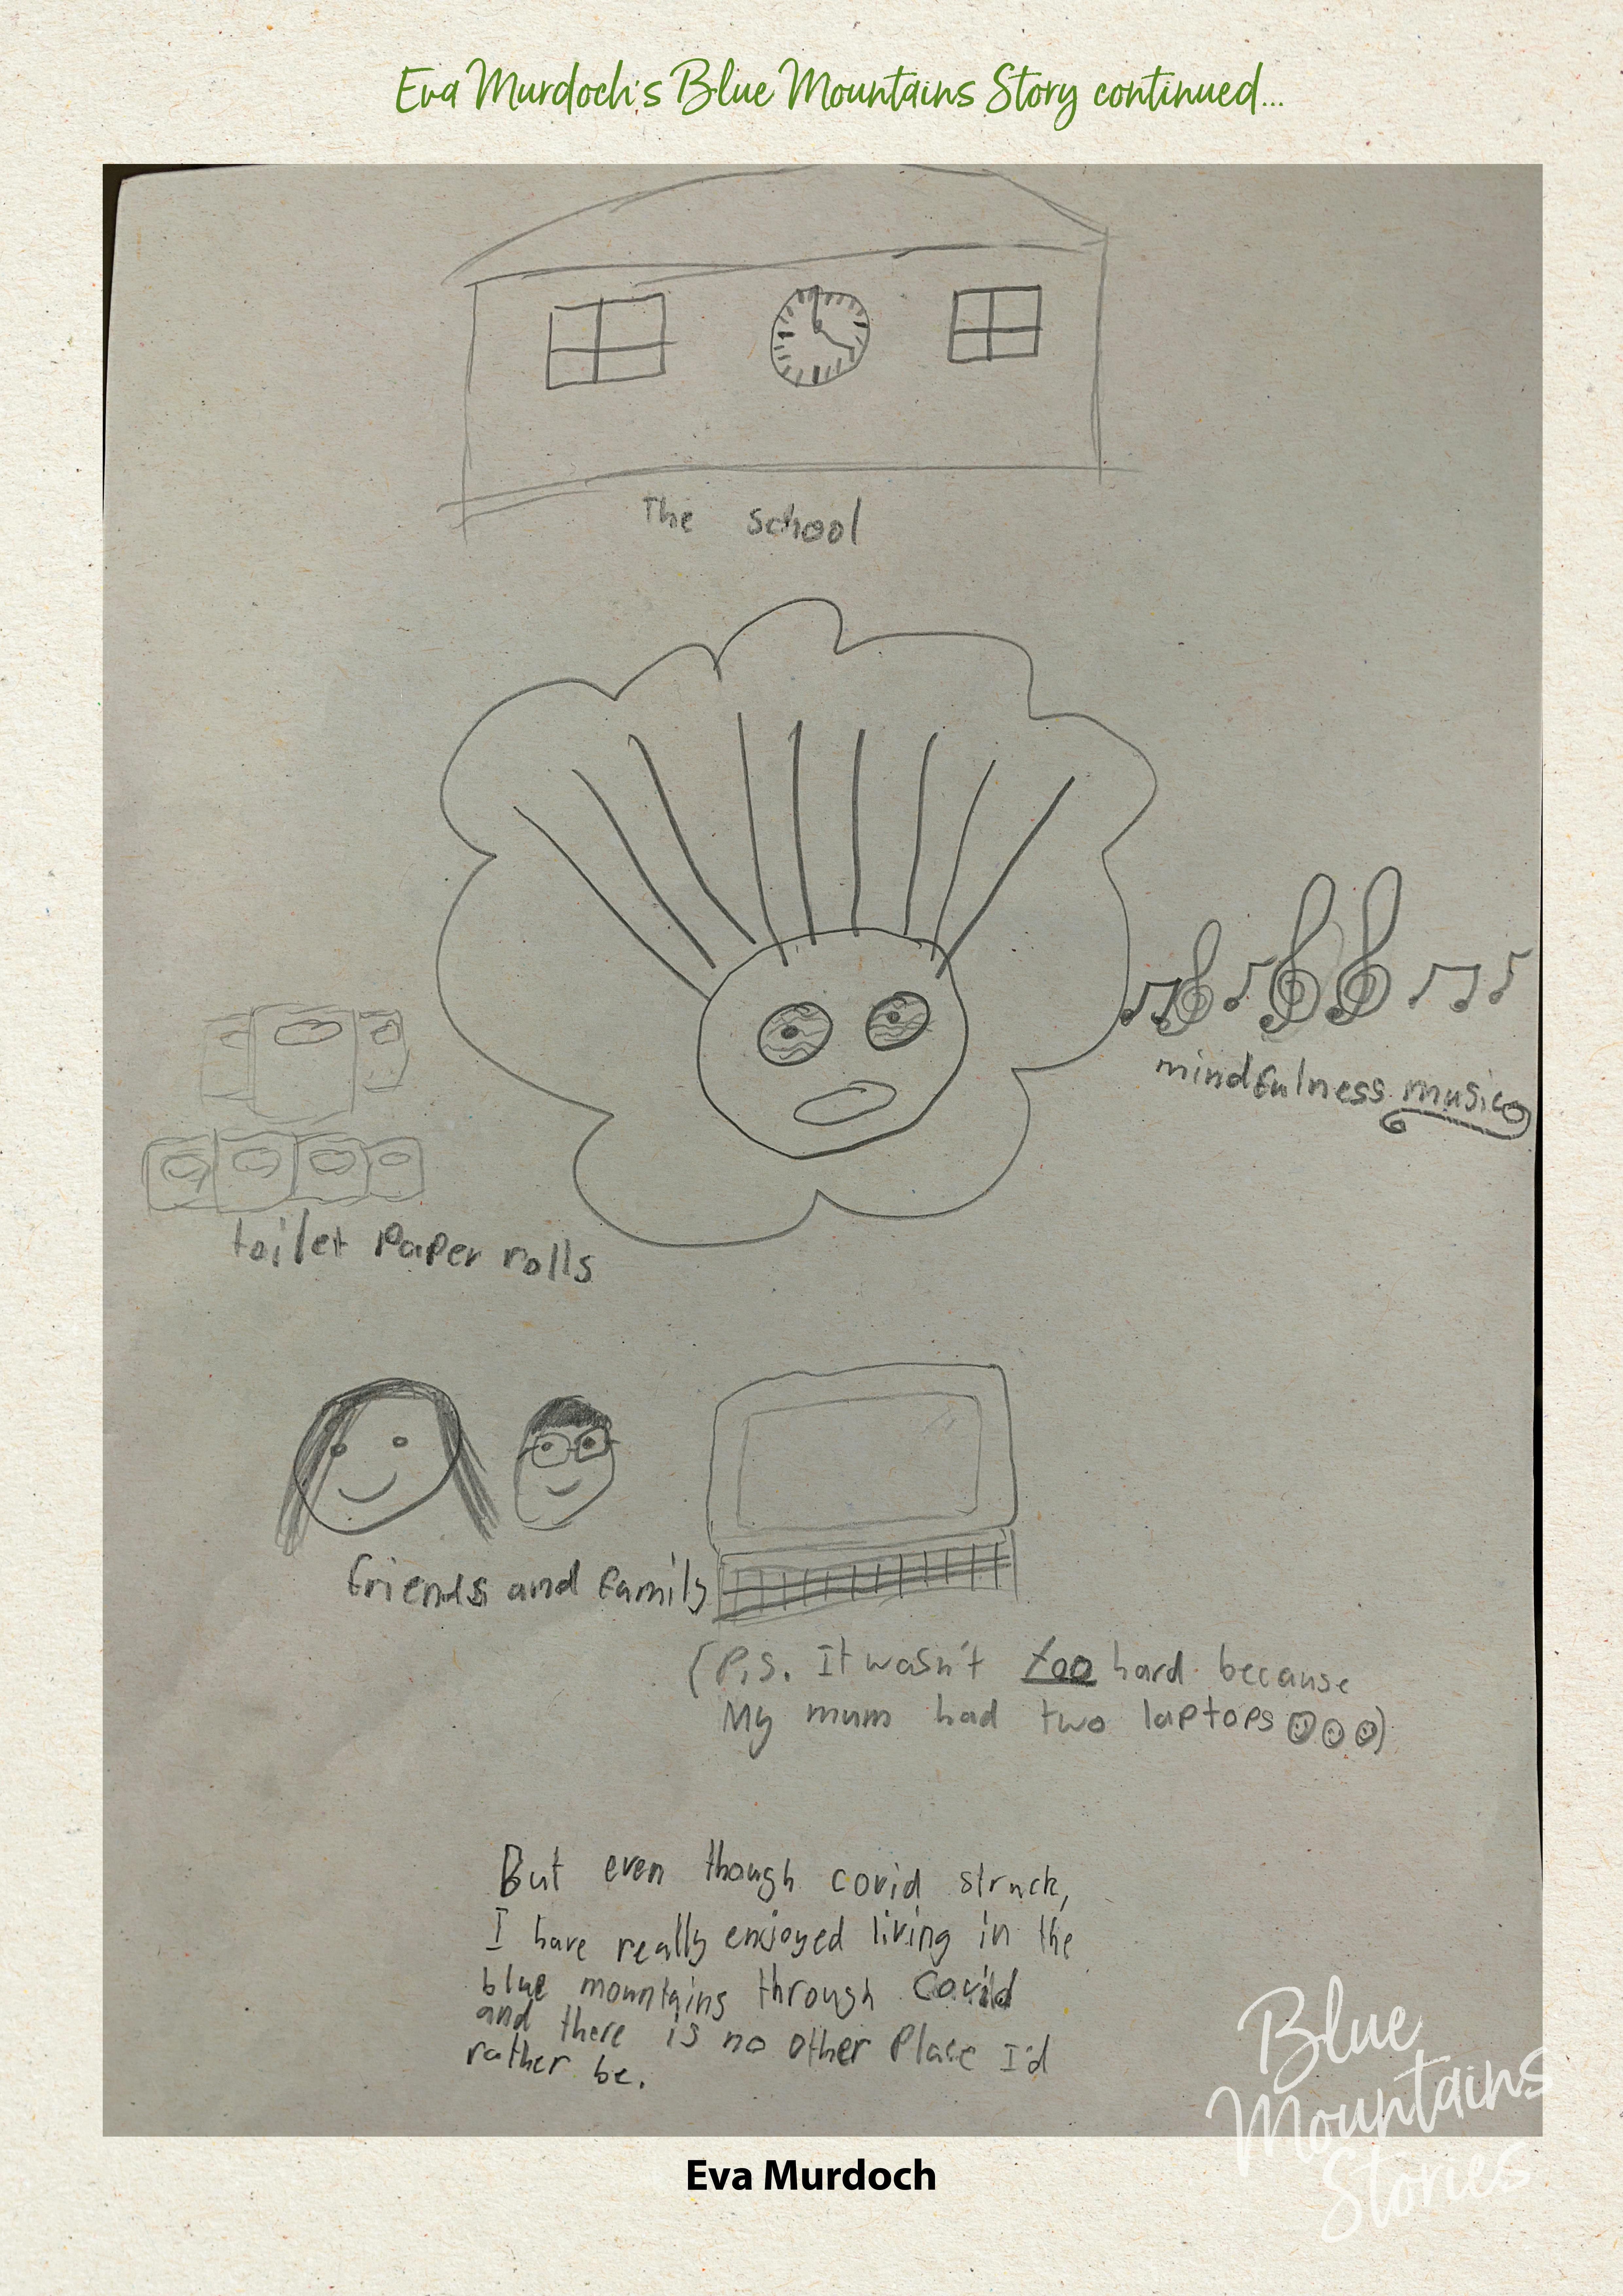 Eva Murdoch's Blue Mountains Story continued...
The school
mindfulness music
toilet paper rolls
friends and family
(P.S. It wasn't too hard because
My mum had two laptops☺☺☺)
But even though covid struck,
I have really enjoyed living in the
blue mountains through Covid
and there is no other place I'd
rather be.
Eva Murdoch
Blue
Mountains
Stories